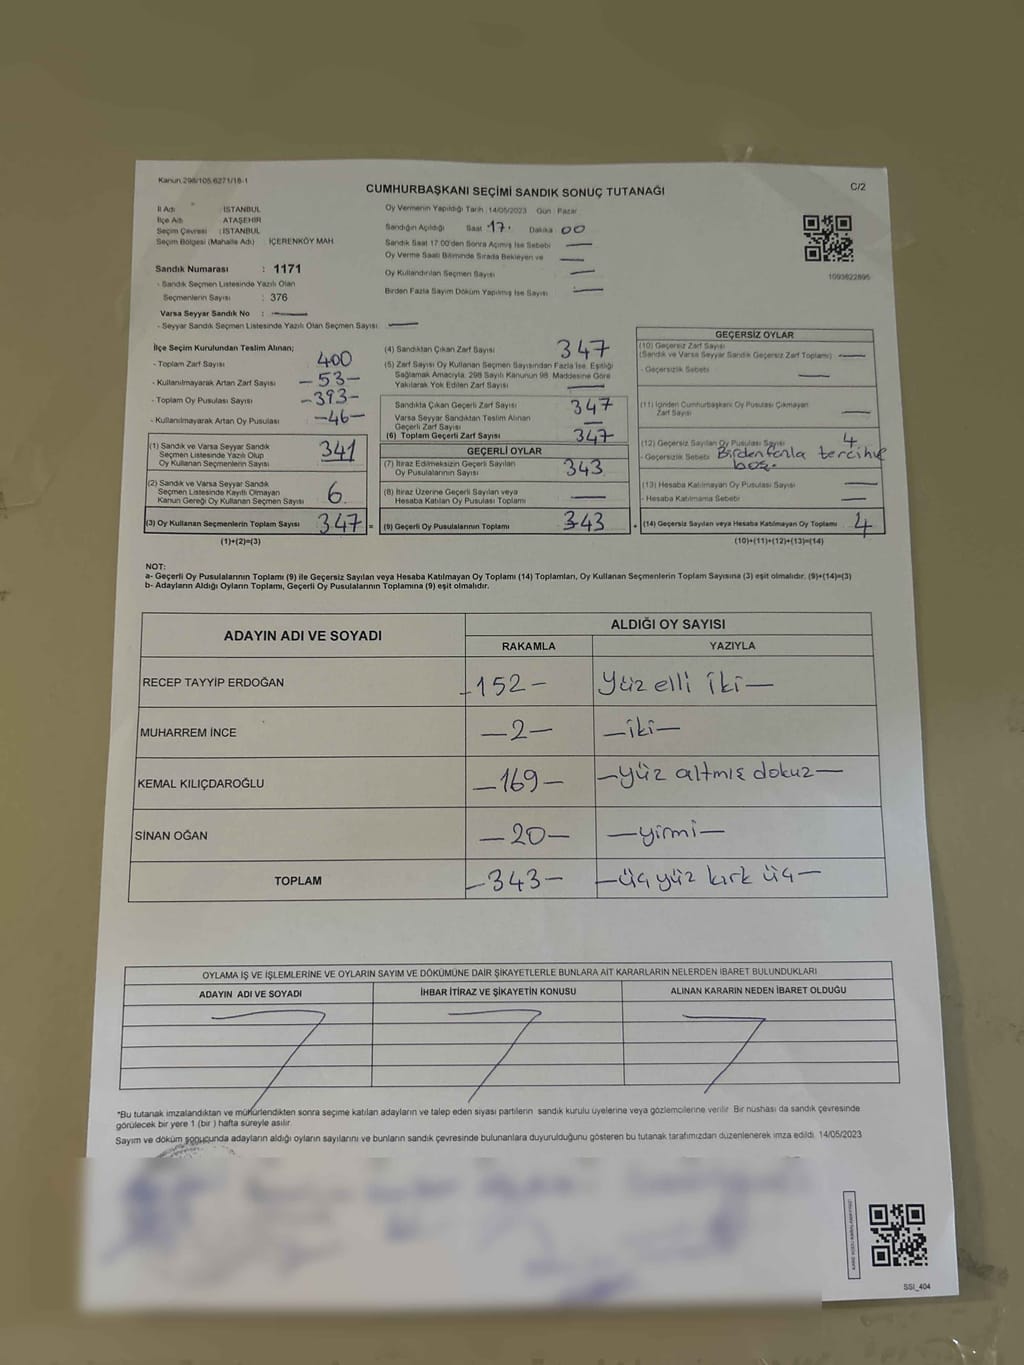 Kanun 298/105,6271/18-1
C/2
CUMHURBAŞKANI SEÇİMİ SANDIK SONUÇ TUTANAĞI
İl Adı : İSTANBUL
İlçe Adı : ATAŞEHİR
Seçim Çevresi : İSTANBUL
Seçim Bölgesi (Mahalle Adı) İÇERENKÖY MAH.
Sandık Numarası : 1171
- Sandık Seçmen Listesinde Yazılı Olan
Seçmenlerin Sayısı : 376
Varsa Seyyar Sandık No :
- Seyyar Sandık Listesinde Yazılı Olan Seçmen Sayısı
Oy Vermenin Yapıldığı Tarih 14/05/2023 Gün Pazar
Sandığın Açıldığı Saat 17. Dakika 00
Sandık Saat 17.00'den Sonra Açılmış İse Sebebi
Oy Verme Saati Bitiminde Sırada Bekleyen ve
Oy Kullandırılan Seçmen Sayısı
Birden Fazla Sayım Döküm Yapılmış İse Sayısı
1093822895
İlçe Seçim Kurulundan Teslim Alınan;
- Toplam Zarf Sayısı 400
- Kullanılmayarak Artan Zarf Sayısı -53-
- Toplam Oy Pusulası Sayısı -393-
- Kullanılmayarak Artan Oy Pusulası -46-
(1) Sandık ve Varsa Seyyar Sandık
Seçmen Listesinde Yazılı Olup
Oy Kullanan Seçmenlerin Sayısı 341
(2) Sandık ve Varsa Seyyar Sandık
Seçmen Listesinde Kayıtlı Olmayan
Kanun Gereği Oy Kullanan Seçmen Sayısı 6
(3) Oy Kullanan Seçmenlerin Toplam Sayısı 347 =
(1)+(2)=(3)
(4) Sandıktan Çıkan Zarf Sayısı 347
(5) Zarf Sayısı Oy Kullanan Seçmen Sayısından Fazla İse, Eşitliği
Sağlamak Amacıyla, 298 Sayılı Kanunun 98. Maddesine Göre
Yakılarak Yok Edilen Zarf Sayısı
Sandıkta Çıkan Geçerli Zarf Sayısı 347
Varsa Seyyar Sandıktan Teslim Alınan
Geçerli Zarf Sayısı
(6) Toplam Geçerli Zarf Sayısı 347
GEÇERLİ OYLAR
(7) İtiraz Edilmeksizin Geçerli Sayılan
Oy Pusulalarının Sayısı 343
(8) İtiraz Üzerine Geçerli Sayılan veya
Hesaba Katılan Oy Pusulası Toplamı
(9) Geçerli Oy Pusulalarının Toplamı 343 +
GEÇERSİZ OYLAR
(10) Geçersiz Zarf Sayısı
(Sandık ve Varsa Seyyar Sandık Geçersiz Zarf Toplamı)
- Geçersizlik Sebebi
(11) İçinden Cumhurbaşkanı Oy Pusulası Çıkmayan
Zarf Sayısı
(12) Geçersiz Sayılan Oy Pusulası Sayısı 4
- Geçersizlik Sebebi Birden fazla tercih
boş.
(13) Hesaba Katılmayan Oy Pusulası Sayısı
- Hesaba Katılmama Sebebi
(14) Geçersiz Sayılan veya Hesaba Katılmayan Oy Toplamı 4
(10)+(11)+(12)+(13)=(14)
NOT:
a- Geçerli Oy Pusulalarının Toplamı (9) ile Geçersiz Sayılan veya Hesaba Katılmayan Oy Toplamı (14) Toplamları, Oy Kullanan Seçmenlerin Toplam Sayısına (3) eşit olmalıdır. (9)+(14)=(3)
b- Adayların Aldığı Oyların Toplamı, Geçerli Oy Pusulalarının Toplamına (9) eşit olmalıdır.
ADAYIN ADI VE SOYADI
ALDIĞI OY SAYISI
RAKAMLA YAZIYLA
RECEP TAYYİP ERDOĞAN -152- Yüz elli iki-
MUHARREM İNCE -2- -iki-
KEMAL KILIÇDAROĞLU -169- -yüz altmış dokuz-
SİNAN OĞAN -20- -yirmi-
TOPLAM -343- -üç yüz kırk üç-
OYLAMA İŞ VE İŞLEMLERİNE VE OYLARIN SAYIM VE DÖKÜMÜNE DAİR ŞİKAYETLERLE BUNLARA AİT KARARLARIN NELERDEN İBARET BULUNDUKLARI
ADAYIN ADI VE SOYADI İHBAR İTİRAZ VE ŞİKAYETİN KONUSU ALINAN KARARIN NEDEN İBARET OLDUĞU
*Bu tutanak imzalandıktan ve mühürlendikten sonra seçime katılan adayların ve talep eden siyasi partilerin sandık kurulu üyelerine veya gözlemcilerine verilir. Bir nüshası da sandık çevresinde
görülecek bir yere 1 (bir) hafta süreyle asılır.
Sayım ve döküm sonucunda adayların aldığı oyların sayılarını ve bunların sandık çevresinde bulunanlara duyurulduğunu gösteren bu tutanak tarafımızdan düzenlenerek imza edildi. 14/05/2023
SSI_404